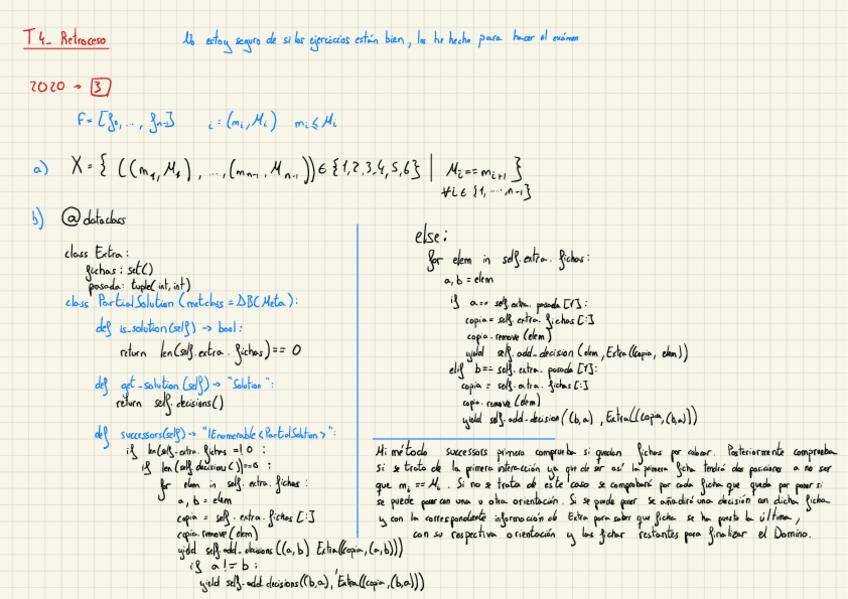 T4_ Retroceso
No estoy seguro de si los ejercicios están bien, los he hecho para hacer el exámen
2020 → 3
F = [f₀, ..., fₙ₋₁]   i = (mᵢ, Mᵢ)   mᵢ ≤ Mᵢ
a) X = { ((m₁, M₁), ..., (mₙ₋₁, Mₙ₋₁)) ∈ {1,2,3,4,5,6} | Mᵢ == mᵢ₊₁ }
∀i ∈ {1, ..., n-1}
b) @dataclass
class Extra:
fichas: set()
pasada: tuple(int, int)
class PartialSolution (metclass = DBCMeta):
def is_solution(self) -> bool:
return len(self.extra.fichas) == 0
def get_solution(self) -> "Solution":
return self.decisions()
def successors(self) -> "IEnumerable<PartialSolution>":
if len(self.extra.fichas =! 0:
if len(self.decisions()) == 0:
for elem in self.extra.fichas:
a, b = elem
copia = self.extra.fichas[:]
copia.remove(elem)
yield self.add_decisions((a,b) Extra((copia, (a,b)))
if a != b:
yield self.add_decisions((b,a), Extra((copia, (b,a)))
else:
for elem in self.extra.fichas:
a, b = elem
if a == self.extra.pasada[1]:
copia = self.extra.fichas[:]
copia.remove(elem)
yield self.add_decision(elem, Extra((copia, elem))
elif b == self.extra.pasada[1]:
copia = self.extra.fichas[:]
copia.remove(elem)
yield self.add_decision((b,a), Extra((copia, (b,a)))
Mi método successors primero comprueba si quedan fichas por colocar. Posteriormente comprueba
si se trata de la primera interacción ya que de ser así la primera ficha tendrá dos posiciones a no ser
que mᵢ == Mᵢ. Si no se trata de este caso se comprobará por cada ficha que queda por poner si
se puede poner con una u otra orientación. Si se puede poner se añadirá una decisión con dicha ficha
y con la correspondiente información de Extra para saber que ficha se ha puesto la última,
con su respectiva orientación y las fichas restantes para finalizar el Domino.